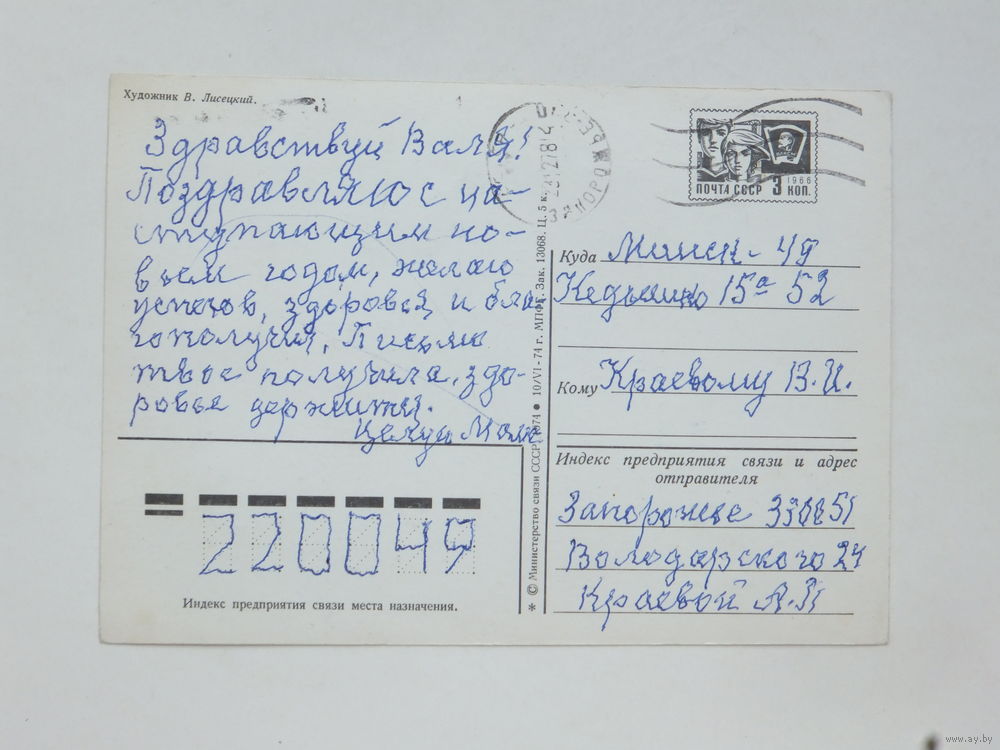 Художник В. Лисецкий.
Здравствуй Валя!
Поздравляю с на-
ступающим но-
вым годом, желаю
успехов, здоровья и бла
гополучия, Письмо
твое получила, здо-
ровье держится.
Целую Мама
ПОЧТА СССР 3 КОП.
1966
ЗАПОРОЖЬЕ
Куда Минск - 49
Кедышко 15а 52
Кому Краевому В.И.
Индекс предприятия связи и адрес
отправителя
Запорожье
Володарского 24
Краевой А.П
220049
Индекс предприятия связи места назначения.
* © Министерство связи СССР, 1974 ● 10/VI-74 г. МПФГ. Зак. 13068. Ц. 5 к.
www.ay.by